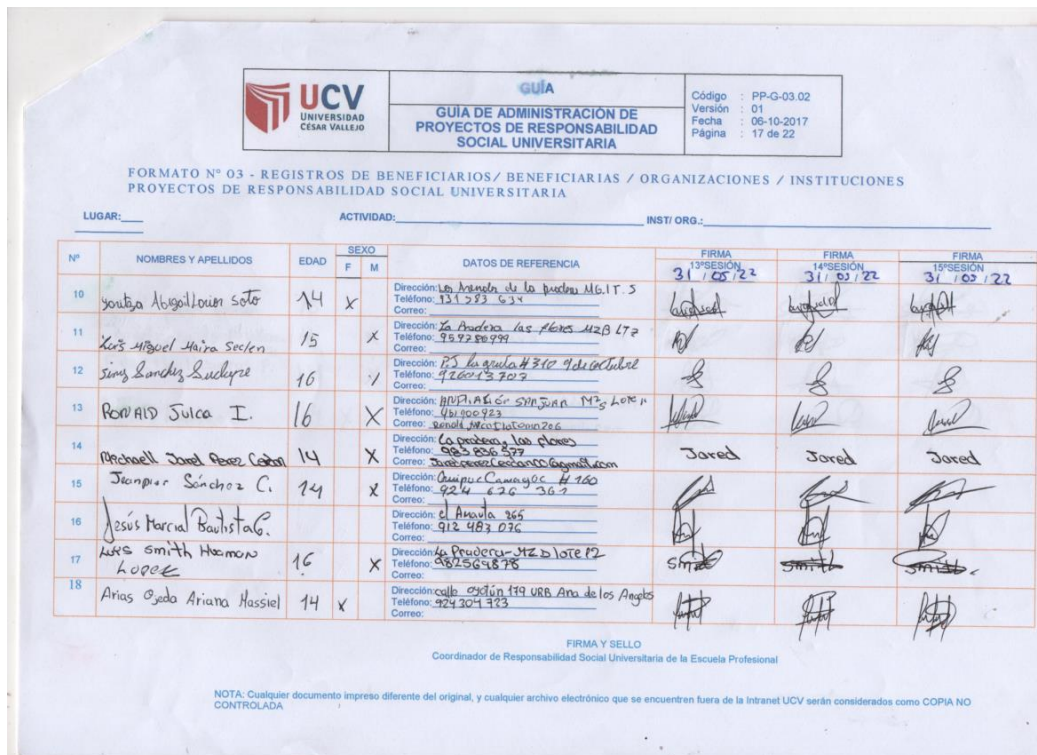 UCV
UNIVERSIDAD
CÉSAR VALLEJO
GUÍA
GUÍA DE ADMINISTRACIÓN DE
PROYECTOS DE RESPONSABILIDAD
SOCIAL UNIVERSITARIA
Código : PP-G-03.02
Versión : 01
Fecha : 06-10-2017
Página : 17 de 22
FORMATO Nº 03 - REGISTROS DE BENEFICIARIOS/ BENEFICIARIAS / ORGANIZACIONES / INSTITUCIONES
PROYECTOS DE RESPONSABILIDAD SOCIAL UNIVERSITARIA
LUGAR: ACTIVIDAD: INST/ ORG.:
Nº NOMBRES Y APELLIDOS EDAD SEXO F M DATOS DE REFERENCIA FIRMA 13ºSESIÓN 31/05/22 FIRMA 14ºSESIÓN 31/05/22 FIRMA 15ºSESIÓN 31/05/22
10 Abigail Soto 14 X
Dirección: Los de la pradera
Teléfono: 931 583 634
Correo:
11 Luis Miguel Maira Seclen 15 X
Dirección: La Pradera las flores MZB LT7
Teléfono: 959286999
Correo:
12 Sanchez 16
Dirección: PJ la gruta #310 9 de octubre
Teléfono: 926013707
Correo:
13 RONALD Julca I. 16 X
Dirección: AMPLIACIÓN SAN JUAN
Teléfono: 961900923
Correo:
14 Michaell Jared Perez 14 X
Dirección: La pradera, las flores
Teléfono: 983 836 577
Correo:
Jared Jared Jared
15 Jeanpier Sánchez C. 14 X
Dirección: # 160
Teléfono: 924 626 361
Correo:
16 Jesús Marcial Bautista C.
Dirección: el 265
Teléfono: 912 483 076
Correo:
17 LUIS Smith Huaman
Lopez 16 X
Dirección: La Pradera - MZ D lote 12
Teléfono: 982569878
Correo:
Smith Smith Smith
18 Arias Ojeda Ariana Massiel 14 X
Dirección: calle oyotún 179 URB Ana de los Angeles
Teléfono: 924304723
Correo:
FIRMA Y SELLO
Coordinador de Responsabilidad Social Universitaria de la Escuela Profesional
NOTA: Cualquier documento impreso diferente del original, y cualquier archivo electrónico que se encuentren fuera de la Intranet UCV serán considerados como COPIA NO
CONTROLADA